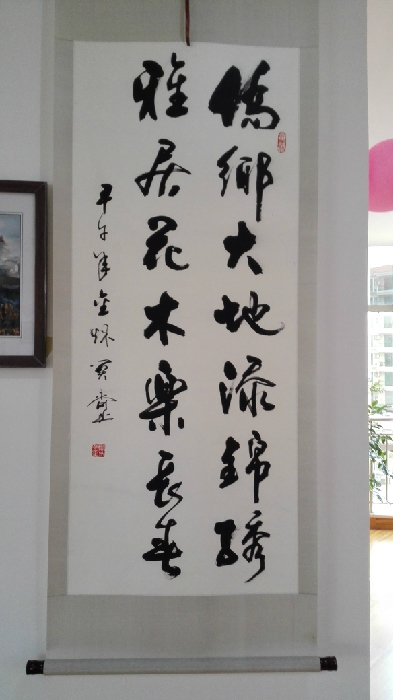 僑鄉大地添錦繡
雅居花木樂長春
甲午年金秋